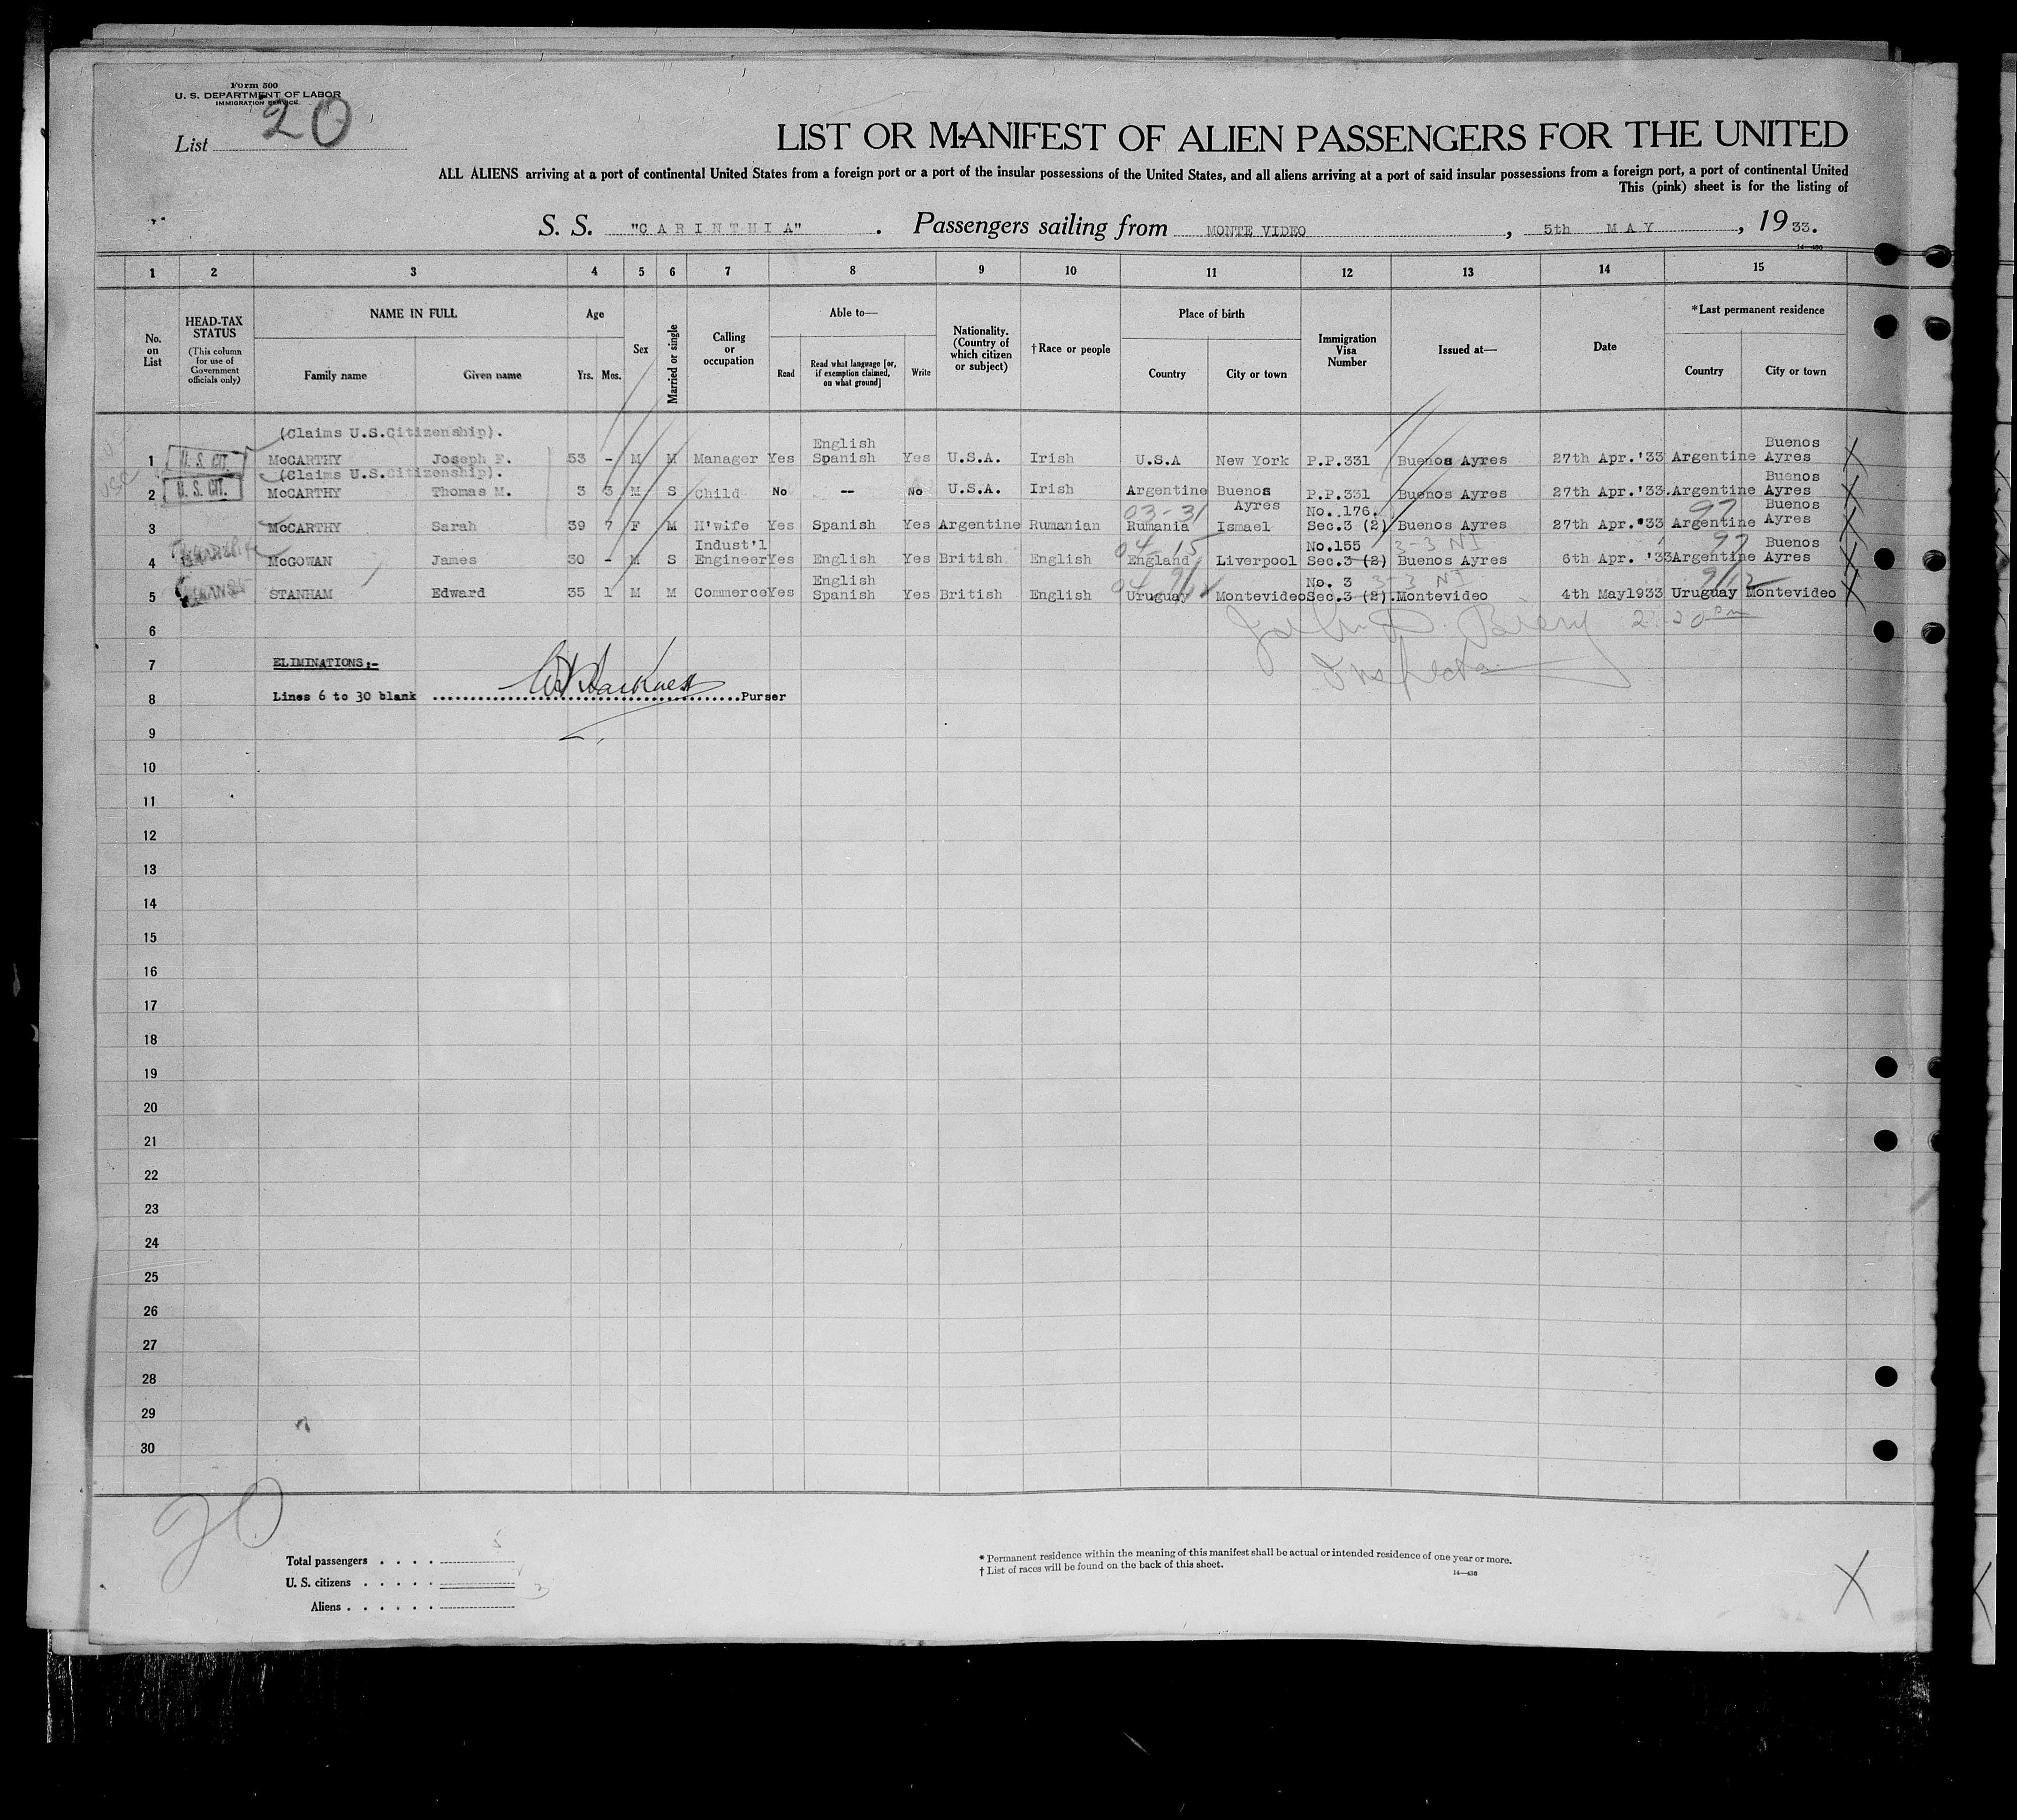 Form 500
U. S. DEPARTMENT OF LABOR
IMMIGRATION SERVICE
List 20
LIST OR MANIFEST OF ALIEN PASSENGERS FOR THE UNITED
ALL ALIENS arriving at a port of continental United States from a foreign port or a port of the insular possessions of the United States, and all aliens arriving at a port of said insular possessions from a foreign port, a port of continental United
This (pink) sheet is for the listing of
S. S. "CARINTHIA". Passengers sailing from MONTE VIDEO, 5th MAY, 1933.
14—430
1 2 3 4 5 6 7 8 9 10 11 12 13 14 15
No. on List
HEAD-TAX STATUS
(This column for use of Government officials only)
NAME IN FULL
Family name Given name
Age
Yrs. Mos.
Sex
Married or single
Calling or occupation
Able to—
Read
Read what language [or, if exemption claimed, on what ground]
Write
Nationality. (Country of which citizen or subject)
†Race or people
Place of birth
Country City or town
Immigration Visa Number
Issued at—
Date
*Last permanent residence
Country City or town
(Claims U.S.Citizenship).
1 U. S. CIT. McCARTHY Joseph F. 53 - M M Manager Yes English Spanish Yes U.S.A. Irish U.S.A New York P.P.331 Buenos Ayres 27th Apr.'33 Argentine Buenos Ayres
(Claims U.S.Citizenship).
2 U. S. CIT. McCARTHY Thomas M. 3 3 M S Child No -- No U.S.A. Irish Argentine Buenos Ayres P.P.331 Buenos Ayres 27th Apr.'33. Argentine Buenos Ayres
3 McCARTHY Sarah 39 7 F M H'wife Yes Spanish Yes Argentine Rumanian 03-31 Rumania Ismael No..176. Sec.3 (2) Buenos Ayres 27th Apr.'33 97 Argentine Buenos Ayres
4 McGOWAN James 30 - M S Indust'l Engineer Yes English Yes British English 04-15 England Liverpool No.155 Sec.3 (2) 3-3 NI Buenos Ayres 6th Apr. '33 97 Argentine Buenos Ayres
5 STANHAM Edward 35 1 M M Commerce Yes English Spanish Yes British English 04 9/12 Uruguay Montevideo No. 3 Sec.3 (2). 3-3 NI Montevideo 4th May1933 9/12 Uruguay Montevideo
6 2.20 Pm
Inspector
7 ELIMINATIONS:-
8 Lines 6 to 30 blank Purser
9
10
11
12
13
14
15
16
17
18
19
20
21
22
23
24
25
26
27
28
29
30
20
Total passengers . . . . 5
U. S. citizens . . . . .
Aliens . . . . . . 3
* Permanent residence within the meaning of this manifest shall be actual or intended residence of one year or more.
† List of races will be found on the back of this sheet.
14—430
X